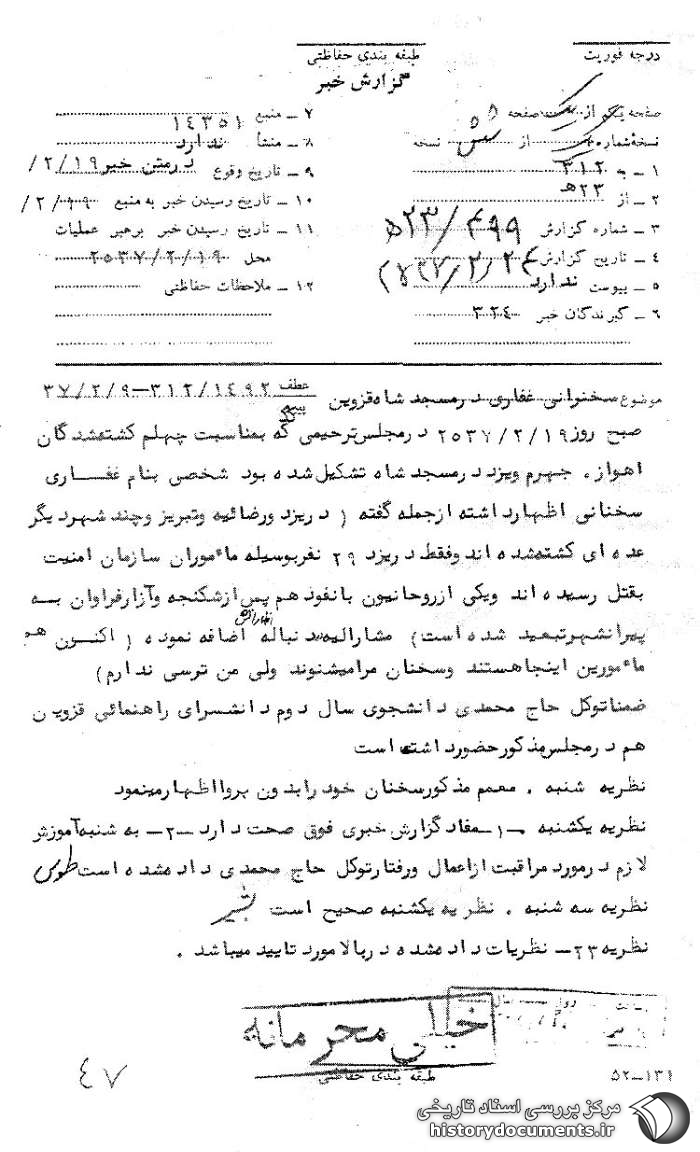 درجه فوریت
طبقه بندی حفاظتی
گزارش خبر
صفحه یک از یک صفحه
نسخه شماره از نسخه
۱ – به ۳۱۲
۲ – از ۲۳هـ
۳ – شماره گزارش ۲۳/۴۹۹هـ
۴ – تاریخ گزارش ۲۵۳۷/۲/۲۴
۵ – پیوست ندارد
۶ – گیرندگان خبر ۳۲۴
۷ – منبع ۱۴۳۵۱
۸ – منشأ ندارد
۹ – تاریخ وقوع درمتن خبر ۲/۱۹/
۱۰ – تاریخ رسیدن خبر به منبع ۲/۱۹/
۱۱ – تاریخ رسیدن خبر برهبر عملیات
محل ۲۵۳۷/۲/۱۹
۱۲ – ملاحظات حفاظتی
موضوع سخنرانی غفاری درمسجد شاه قزوین عطف ۳۱۲/۱۴۹۲–۳۷/۲/۹
پیرو
صبح روز ۲۵۳۷/۲/۱۹ درمجلس ترحیمی که بمناسبت چهلم کشته شدگان
اهواز . جهرم ویزد درمسجد شاه تشکیل شده بود شخصی بنام غفاری
سخنانی اظهارداشته ازجمله گفته ( دریزد ورضائیه وتبریز وچند شهردیگر
عده ای کشته شده اند وفقط دریزد ۲۹ نفربوسیله ماموران سازمان امنیت
بقتل رسیده اند ویکی ازروحانیون بانفوذ هم پس ازشکنجه وآزارفراوان به
پیرانشهرتبعید شده است) مشارالیه بدنباله اظهاراتش اضافه نموده ( اکنون هم
مامورین اینجاهستند وسخنان مرامیشنوند ولی من ترسی ندارم)
ضمناتوکل حاج محمدی دانشجوی سال دوم دانشسرای راهنمائی قزوین
هم درمجلس مذکورحضورداشته است
نظریه شنبه . معمم مذکورسخنان خودرابدون پروااظهارمینمود
نظریه یکشنبه . ۱–مفادگزارش خبری فوق صحت دارد –۲– به شنبه آموزش
لازم درمورد مراقبت ازاعمال ورفتارتوکل حاج محمدی داده شده است طوسی
نظریه سه شنبه . نظریه یکشنبه صحیح است
نظریه ۲۳– نظریات داده شده دربالامورد تایید میباشد .
خیلی محرمانه
طبقه بندی حفاظتی
۵۲–۱۳۱
۴۷
مرکز بررسی اسناد تاریخی
historydocuments.ir